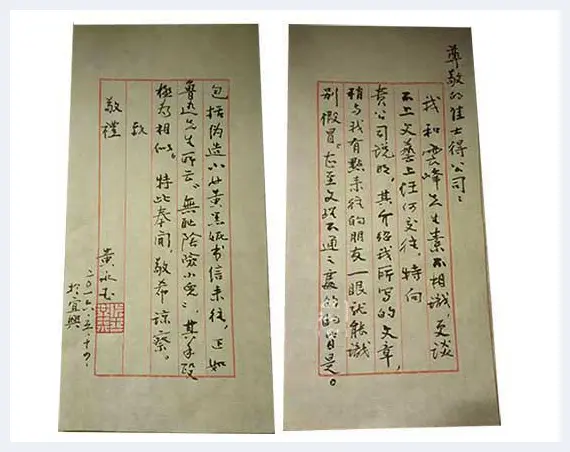 尊敬的佳士得公司：
我和云峰先生素不相識，更谈
不上文藝上任何交往，特向
贵公司说明，其介绍我所写的文章，
稍与我有點来往的朋友一眼就能識
别假冒。甚至文理不通之處的的皆是。
包括伪造小女黄黑妮书信来往，正如
鲁迅先生所云，無耻陰險小兒，其手段
極為相似。特此奉闻，敬希諒察。
致
敬禮
黄永玉
二〇一六、五、十四、
於宜興